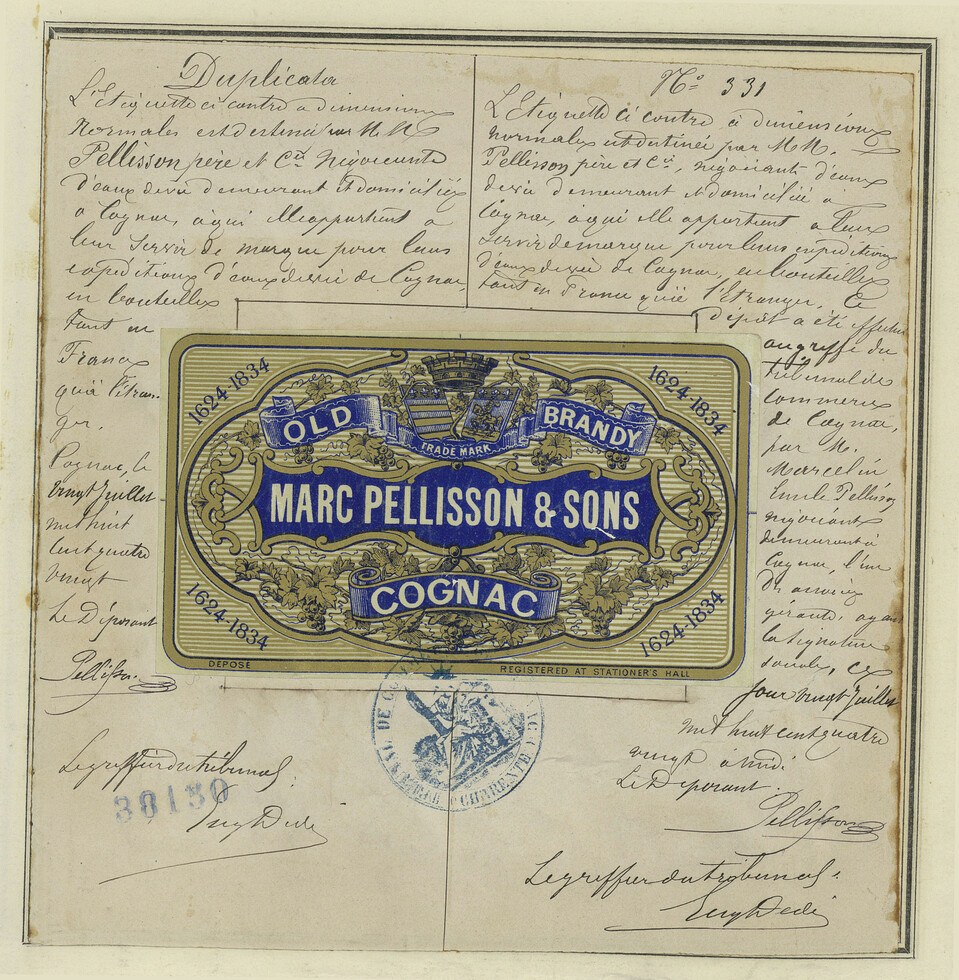 Duplicata
L'Etiquette ci contre a dimensions
normales est destinée par M.M.
Pellisson père et Cie, négociants
d'eaux de vie demeurant et domiciliés
à Cognac, à qui elle appartient a
leur servir de marque pour leurs
expéditions d'eaux de vie de Cognac,
en bouteilles
tant en
France
qu'à l'étran-
ger.
Cognac, le
vingt Juillet
mil huit
cent quatre
vingt
Le Déposant
Pellisson
Le greffier du tribunal.
38130
No 331
L'Etiquette ci contre à dimensions
normales est destinée par M.M.
Pellisson père et Cie, négociants d'eaux
de vie demeurant et domiciliés à
Cognac, à qui elle appartient a leur
servir de marque pour leurs expéditions
d'eaux de vie de Cognac, en bouteilles
tant en France qu'à l'Etranger. Ce
dépôt a été effectué
au greffe du
tribunal de
commerce
de Cognac,
par M.
Marcelin
Emile Pellisson
négociant
demeurant à
Cognac, l'un
des associés
gérants, ayant
la signature
sociale, ce
jour vingt Juillet
mil huit cent quatre
vingt à midi.
Le Déposant.
Pellisson
Le greffier du tribunal.
1624-1834
1624-1834
OLD
BRANDY
TRADE MARK
MARC PELLISSON & SONS
COGNAC
1624-1834
1624-1834
DÉPOSÉ
REGISTERED AT STATIONER'S HALL
CHARENTE